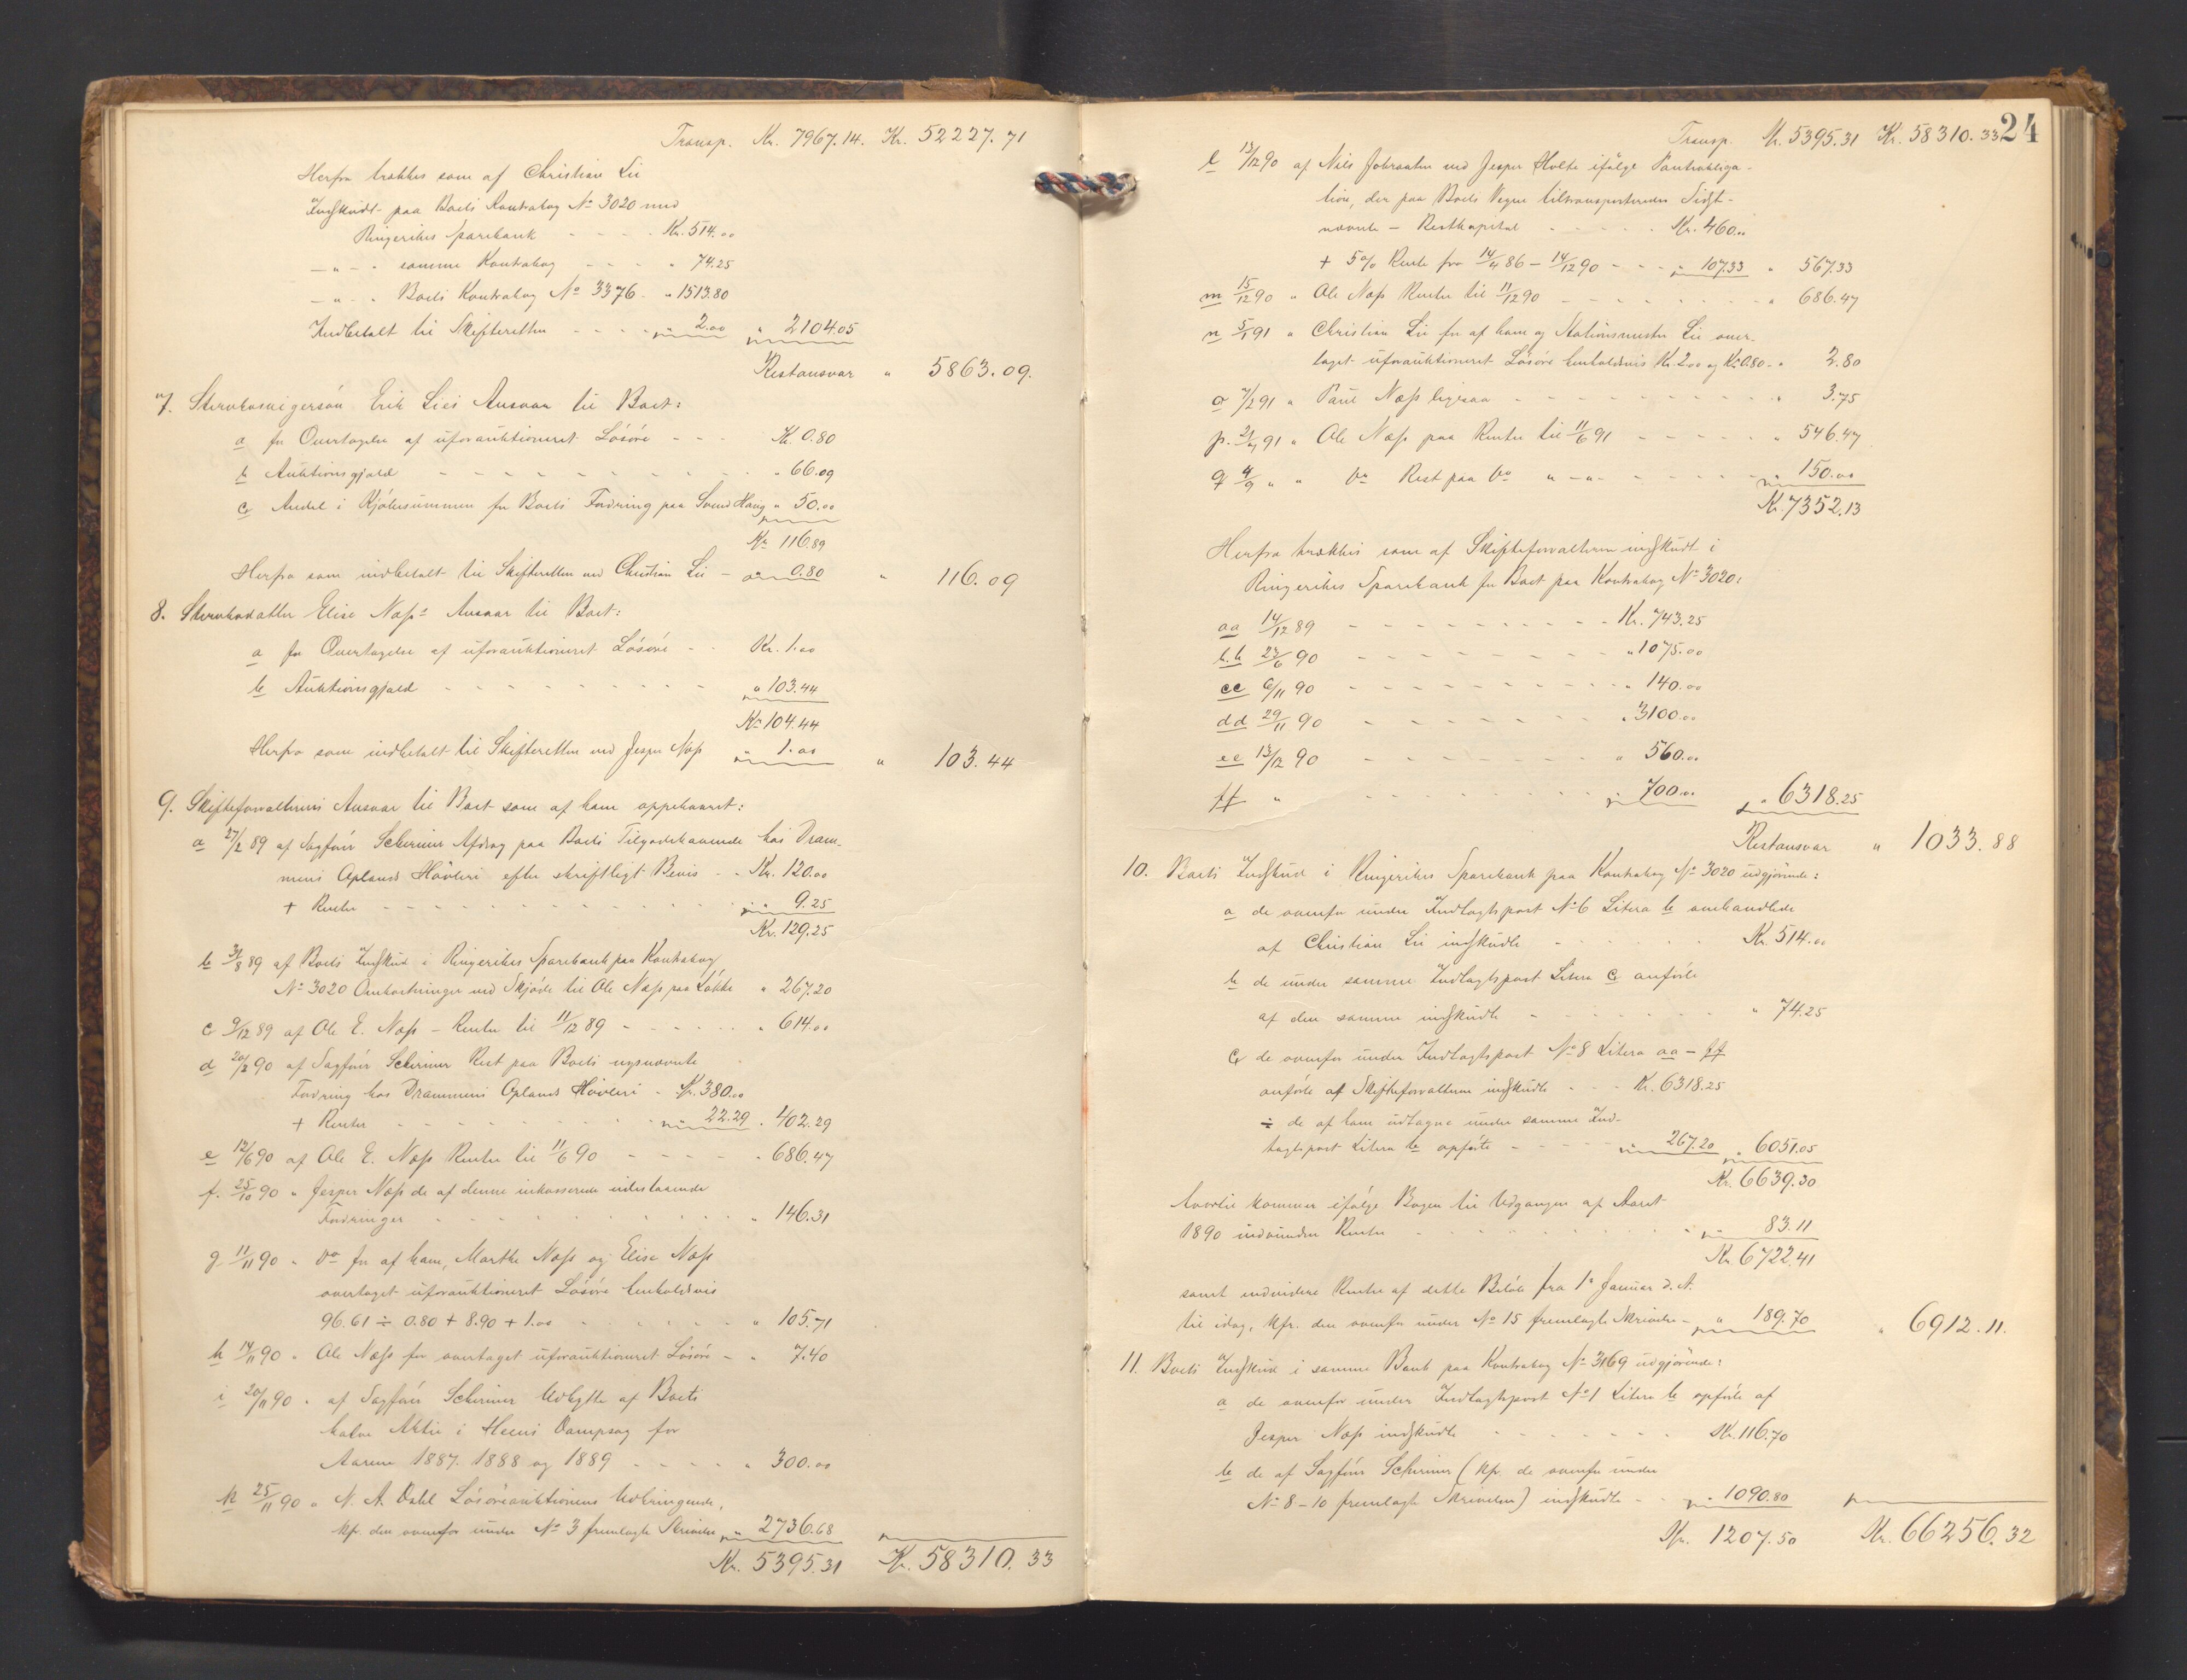 Transp. Kr. 7967.14. Kr. 52227.71
Herfra trækkes som af Christian Lie
Indskudt paa Boets Kontrabog No 3020 med
Ringerikes Sparebank - - - - Kr. 514.00
— " — - samme Kontrabog - - - " 74.25
— " — - Boets Kontrabog No 3376 - " 1513.80
Indbetalt til Skifteretten - - - - " 2.00 " 2104.05
Restansvar " 5863.09.
7. Stervbosvigersön Erik Lies Ansvar til Boet:
a for Overtagelse af uforauktioneret Lösöre - - - Kr. 0.80
b Auktionsgjæld - - - - - - - - - " 66.09
c Andel i Kjöbesummen for Boets Fordring paa Svend Haug " 50.00
Kr. 116.89
Herfra som indbetalt til Skifteretten ved Christian Lie - " 0.80 " 116.09
8. Stervbodatter Elise Næss's Ansvar til Boet:
a for Overtagelse af uforauktioneret Lösöre - - Kr. 1.00
b Auktionsgjæld - - - - - - - - " 103.44
Kr. 104.44
Herfra som indbetalt til Skifteretten ved Jesper Næss " 1.00 " 103.44
9. Skifteforvalterens Ansvar til Boet som af ham oppebaaret:
a 27/2 89 af Sagförer Scheriner Afdrag paa Boets Tilgodehavende hos Dram-
mens Oplands Hövleri efter skriftligt Bevis - - Kr. 120.00
+ Renter - - - - - - - - - - - - " 9.25
Kr. 129.25
b 31/8 89 af Boets Indskud i Ringerikes Sparebank paa Kontrabog
No 3020 Omkostninger ved Skjöde til Ole Næss paa Lökke " 267.20
c 9/12 89 af Ole E. Næss - Renter til 11/12 89 - - - - - " 614.00
d 20/2 90 af Sagförer Scheriner Rest paa Boets nysnævnte
Fordring hos Drammens Oplands Höivleri - Kr. 380.00
+ Renter - - - - - - - - " 22.29 " 402.29
e 12/6 90 af Ole E. Næss Renter til 11/6 90 - - - - - " 686.47
f. 25/10 90 " Jesper Næss de af denne inkasserede udestaaende
Fordringer - - - - - - - - - - " 146.31
g 11/11 90 " Do for af ham, Marthe Næss og Elise Næss
overtaget uforauktioneret Lösöre henholdsvis
96.61 ÷ 0.80 + 8.90 + 1.00 - - - - - " 105.71
h 14/11 90 " Ole Næss for overtaget uforauktioneret Lösöre - " 7.40
i 20/11 90 " af Sagförer Scheriner Udbytte af Boets
halve Aktie i Heens Dampsag for
Aarene 1887. 1888 og 1889 - - - - " 300.00
k 25/11 90 " N. A. Dahl Lösöreauktionens Udbringende,
kfr. den ovenfor under No 3 fremlagte Skrivelse " 2736.68
Kr. 5395.31 Kr. 58310.33
24
Transp. Kr. 5395.31 Kr. 58310.33
l 13/12 90 af Nils Johraaten ved Jesper Holte ifölge Pantobliga-
tion, der paa Boets Vegne tiltransporteredes Sidst-
nævnte - Restkapital - - - - - Kr. 460.00
+ 5% Rente fra 14/4 86 - 14/12 90 - - - " 107.33 " 567.33
m 15/12 90 " Ole Næss Renter til 11/12 90 - - - - - - - " 686.47
n 5/1 91 " Christian Lie for af ham og Stationsmester Lie over-
taget uforauktioneret Lösöre henholdsvis Kr. 2.00 og Kr. 0.80 - " 2.80
o 7/2 91 " Paul Næss ligesaa - - - - - - - - - - " 3.75
p. 21/7 91 " Ole Næss paa Renter til 11/6 91 - - - - - " 546.47
q 4/9 " " Do Rest paa Do " — " - - - - - " 150.00
Kr. 7352.13
Herfra trækkes som af Skifteforvalteren indskudt i
Ringerikes Sparebank for Boet paa Kontrabog No 3020:
aa 14/12 89 - - - - - - - - - - Kr. 743.25
b.b 23/6 90 - - - - - - - - - " 1075.00
cc 6/11 90 - - - - - - - - - - " 140.00
dd 29/11 90 - - - - - - - - " 3100.00
ee 13/12 90 - - - - - - - - " 560.00
ff " - - - - - - - - - " 700.00 " 6318.25
Restansvar " 1033.88
10. Boets Indskud i Ringerikes Sparebank paa Kontrabog No 3020 udgjörende:
a de ovenfor under Indtægtspost No 6 Litera b omhandlede
af Christian Lie indskudte - - - - - - Kr. 514.00
b de under samme Indtægtspost Litera c anförte
af den samme indskudte - - - - - - - " 74.25
c de ovenfor under Indtægtspost No 8 Litera aa - ff
anförte af Skifteforvalteren indskudte - - - Kr. 6318.25
÷ de af ham udtagne under samme Ind-
tægtspost Litera b opförte - - - - " 267.20 " 6051.05
Kr. 6639.30
hvortil kommer ifölge Bogen til Udgangen af Aaret
1890 indvundne Renter - - - - - - - - - " 83.11
Kr. 6722.41
samt indvundne Renter af dette Belöb fra 1e Januar d. A.
til idag, kfr. den ovenfor under No 15 fremlagte Skrivelse - " 189.70 " 6912.11.
11. Boets Indskud i samme Bank paa Kontrabog No 3169 udgjörende:
a de ovenfor under Indtægtspost No 1 Litera b opförte af
Jesper Næss indskudte - - - - - - - Kr. 116.70
b de af Sagförer Scheriner (kfr. de ovenfor under
No 8 - 10 fremlagte Skrivelser) indskudte - - " 1090.80
Kr. 1207.50 Kr. 66256.32